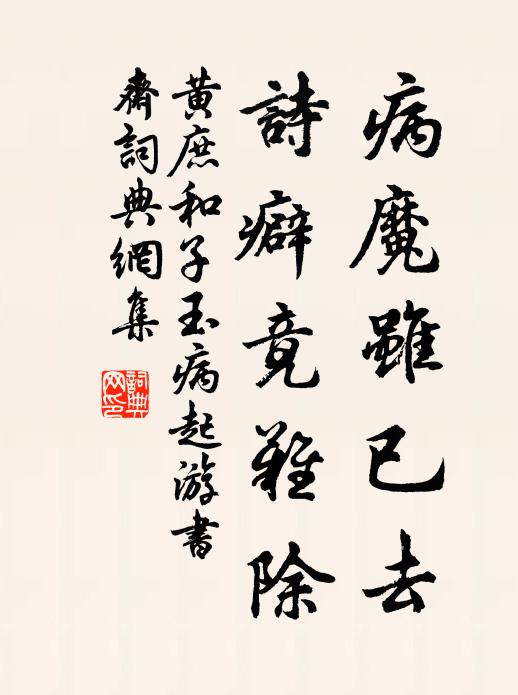 病魔雖已去
詩癖竟難除
黃庶和子玉病起游書
齋詞典網集
詞典網印